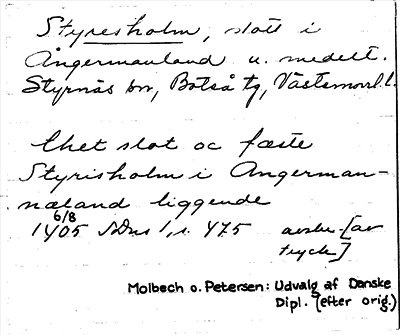 Styresholm, slott i
Ångermanland u. medelt.
Styrnäs sn, Boteå tg, Västernorrl. l.
thet slot oc fæste
Styrisholm i Angerman-
næland liggende
6/8
1405 SDns 1, s. 475 avskr [av
tryck]
Molbech o. Petersen: Udvalg af Danske
Dipl. (efter orig.)